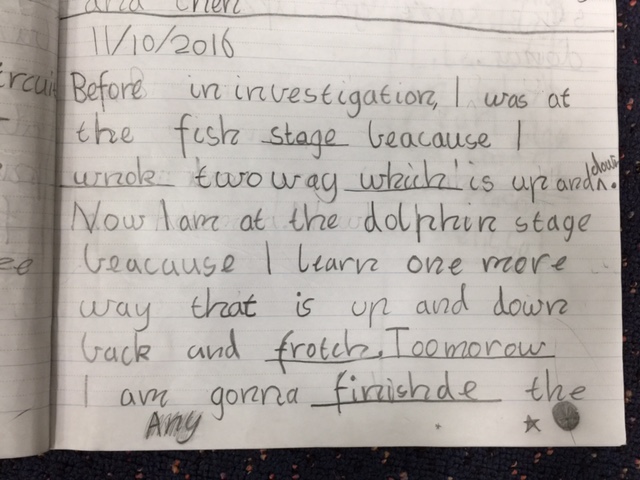 and then
11/10/2016
Before in investigation, I was at
the fish stage beacause I
wnok two way which is up and down.
Now I am at the dolphin stage
beacause I learn one more
way that is up and down
back and frotch. Toomorow
I am gonna finishde the
Amy